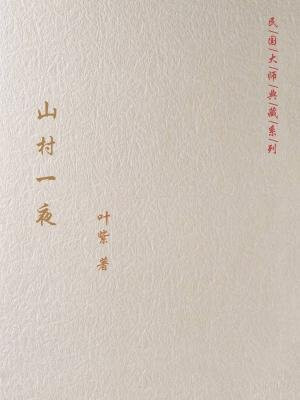 民/国/大/师/典/藏/系/列
山村一夜
叶紫 著